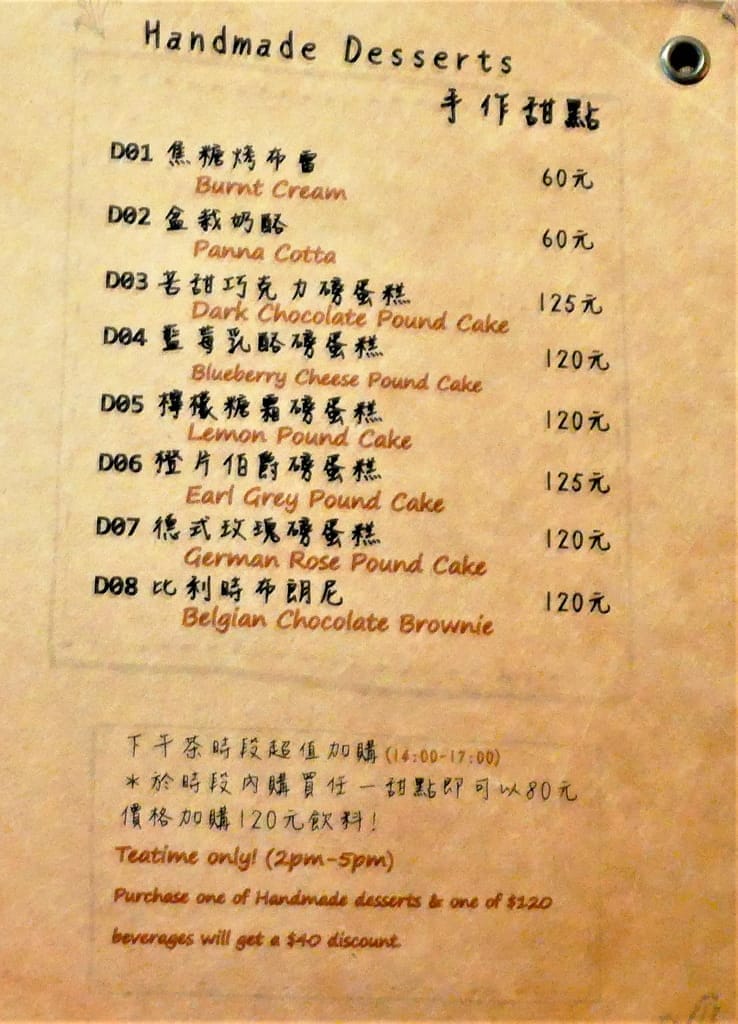 Handmade Desserts
手作甜點
D01 焦糖烤布雷 60元
Burnt Cream
D02 盆栽奶酪 60元
Panna Cotta
D03 苦甜巧克力磅蛋糕 125元
Dark Chocolate Pound Cake
D04 藍莓乳酪磅蛋糕 120元
Blueberry Cheese Pound Cake
D05 檸檬糖霜磅蛋糕 120元
Lemon Pound Cake
D06 橙片伯爵磅蛋糕 125元
Earl Grey Pound Cake
D07 德式玫瑰磅蛋糕 120元
German Rose Pound Cake
D08 比利時布朗尼 120元
Belgian Chocolate Brownie
下午茶時段超值加購(14:00-17:00)
*於時段內購買任一甜點即可以80元
價格加購120元飲料!
Teatime only! (2pm-5pm)
Purchase one of Handmade desserts & one of $120
beverages will get a $40 discount.